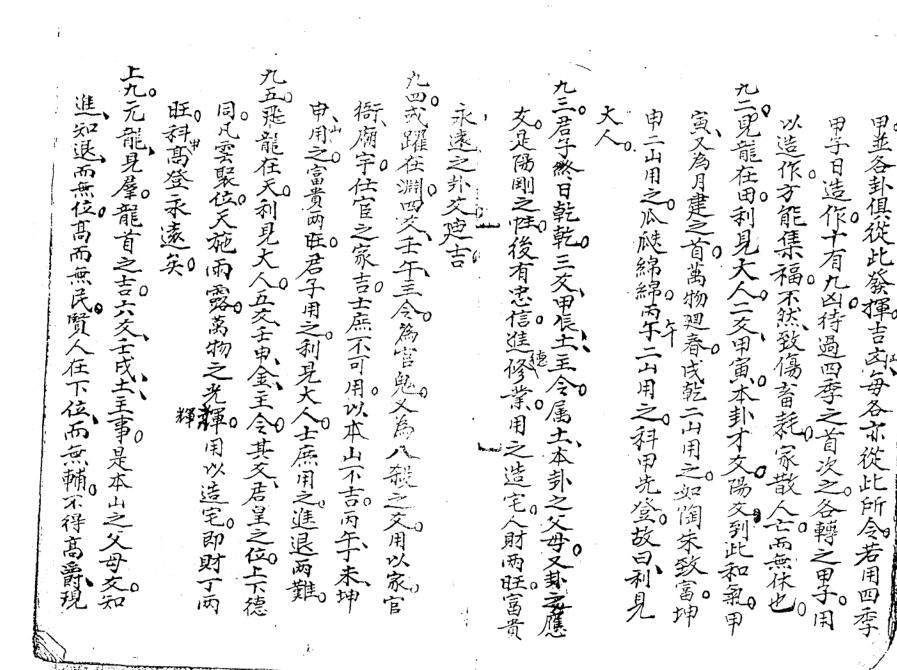 甲並各卦俱從此發揮。吉凶每各亦從此所令。若用四季
甲子日造作。十有九凶。待過四季之首次之。各轉之甲子。用
以造作。方能集福。不然致傷畜耗。家散人亡而無休也。
九二。見龍在田。利見大人。二爻甲寅。本卦才爻。陽爻到此和氣。甲
寅、又為月建之首。萬物廻春。戌乾二山用之。如陶朱致富。坤
申二山用之。瓜瓞綿綿。丙午二山用之。科甲先登。故曰利見
大人。
九三。君子終日乾乾。三爻甲辰、土主令。属土、本卦之父母。又卦之應
爻。是陽剛之性。後有忠信進德修業。用之造宅。人財兩旺。富貴
永遠之卦爻廸吉。
九四。或躍在淵。四爻壬午、主令。為官鬼。又為八殺之爻。用以家官
衙、廟宇。仕宦之家吉。士庶不可用。以本山不吉。丙午丁未、坤
申、山用之。富貴兩旺。君子用之。利見大人。士庶用之。進退兩難。
九五。飛龍在天。利見大人。五爻壬申、金主令。其爻君皇之位。上下德
同。凡雲聚位。天施雨露。萬物之光輝。用以造宅。即財丁兩
旺。科甲高登。永遠矣。
上九。亢龍、見羣龍首之吉。六爻壬戌、土主事。是本山之父母爻。知
進、知退、而無位。高而無民。賢人在下位、而無輔。不得高爵、現